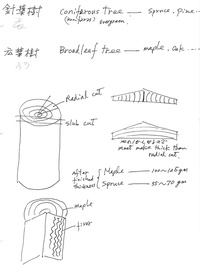 針葉樹 Coniferous tree — Spruce, pine...
(coniferous) evergreen.
広葉樹 Broadleaf tree — maple, oak...
Radial cut
slab cut
must make thick than
radial cut.
after
finished
thickness
Maple — 100~105 gm
Spruce — 55~70 gm
maple